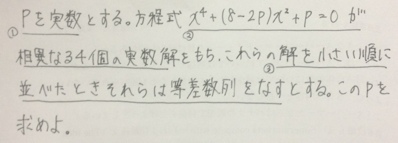 Pを実数とする。方程式 x⁴+(8-2P)x²+P=0 が
① ②
相異なる4個の実数解をもち、これらの解を小さい順に
③
並べたときそれらは等差数列をなすとする。このPを
求めよ。